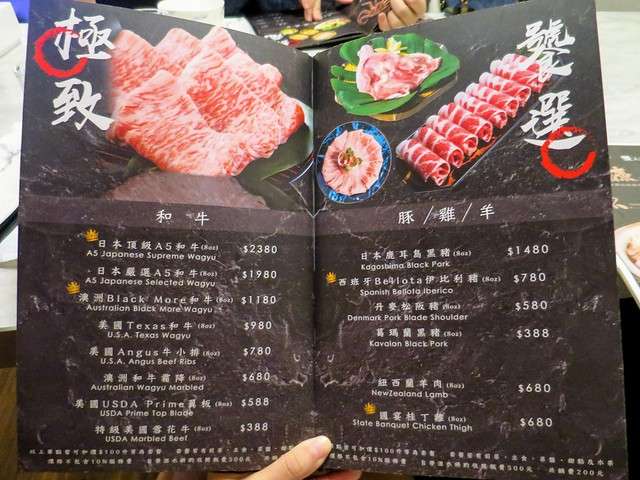 極致
饕選
和牛
日本頂級A5和牛(8oz) $2380
A5 Japanese Supreme Wagyu
日本嚴選A5和牛(8oz) $1980
A5 Japanese Selected Wagyu
澳洲Black More和牛(8oz) $1180
Australian Black More Wagyu
美國Texas和牛(8oz) $980
U.S.A. Texas Wagyu
美國Angus牛小排(8oz) $780
U.S.A. Angus Beef Ribs
澳洲和牛霜降(8oz) $680
Australian Wagyu Marbled
美國USDA Prime翼板(8oz) $588
USDA Prime Top Blade
特級美國雪花牛(8oz) $388
USDA Marbled Beef
豚/雞/羊
日本鹿耳島黑豬(8oz) $1480
Kagoshima Black Pork
西班牙Bellota伊比利豬(8oz) $780
Spanish Bellota Iberico
丹麥松阪豬(8oz) $580
Denmark Pork Blade Shoulder
葛瑪蘭黑豬(8oz) $388
Kavalan Black Pork
紐西蘭羊肉(8oz) $680
NewZealand Lamb
國宴桂丁雞(8oz) $680
State Banquet Chicken Thigh